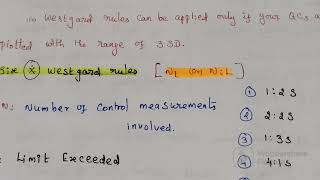 Westgard rules can be applied only if your QCs
plotted with the range of 3SD.
Six Westgard rules [NL or N:L]
N: Number of control measurements
involved.
Limit Exceeded
① 1:2S
② 2:2S
③ 1:3S
④ 4:1S